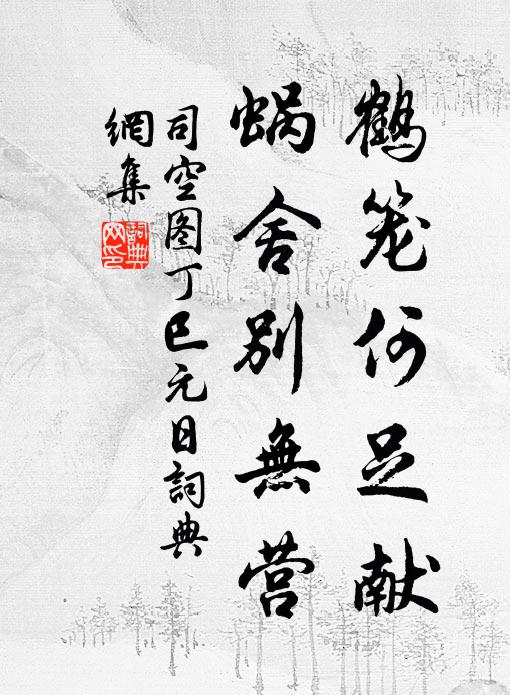 鹤笼何足献
蜗舍别無营
司空图丁巳元日詞典
網集
詞典网印